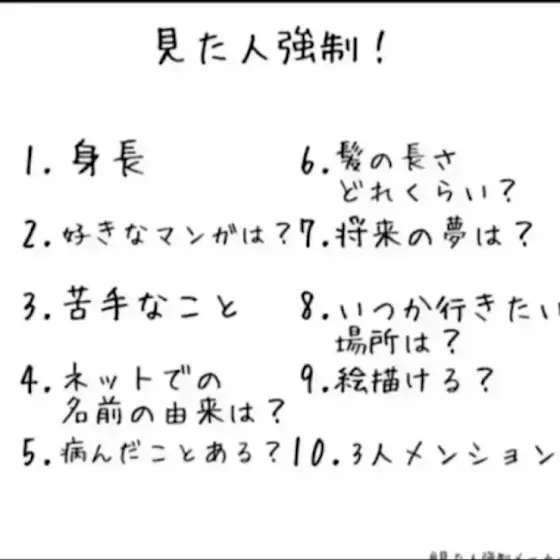 見た人強制!
1. 身長
2. 好きなマンガは?
3. 苦手なこと
4. ネットでの
名前の由来は?
5. 病んだことある?
6. 髪の長さ
どれくらい?
7. 将来の夢は?
8. いつか行きたい
場所は?
9. 絵描ける?
10. 3人メンション